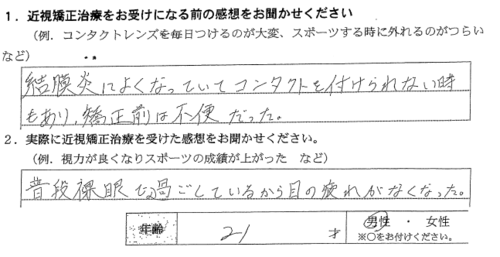 1．近視矯正治療をお受けになる前の感想をお聞かせください
（例．コンタクトレンズを毎日つけるのが大変、スポーツする時に外れるのがつらい
など）
結膜炎によくなっていてコンタクトを付けられない時
もあり、矯正前は不便だった。
2．実際に近視矯正治療を受けた感想をお聞かせください。
（例．視力が良くなりスポーツの成績が上がった　など）
普段裸眼で過ごしているから目の疲れがなくなった。
年齢 21 才 男性 ・ 女性
※○をお付けください。